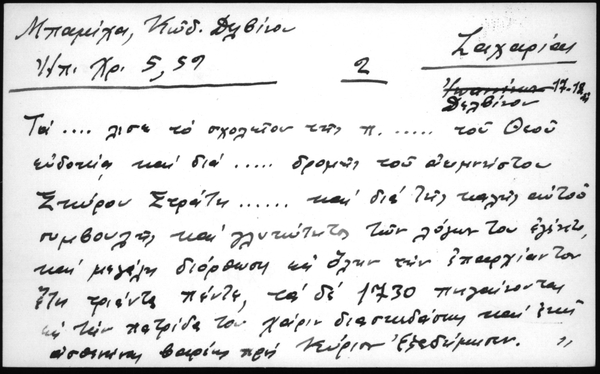 Μπαμίχα, Κῶδ. Δελβίνου
Ἠπ. Χρ. 5, 59
2
Ζαχαρίας
17-18
Δελβίνου
Τά .... λισε τό σχολεῖον τῆς π. ..... τοῦ Θεοῦ
εὐδοκία καί διά ..... δρομῆς τοῦ ἀειμνήστου
Σπύρου Στράτη ...... καί διά τῆς καλῆς αὐτοῦ
συμβουλῆς καί γλυκύτητος τῶν λόγων του ἐγένετο
καί μεγάλη διόρθωσι εἰς ὅλην τήν ἐπαρχίαν του
ἔτη τριάντα πέντε, τά δέ 1730 πηγαίνοντας
εἰς τήν πατρίδα του χάριν διασκεδάσεως καί ἐκεῖ
ἀσθενήσας βαρέως πρός Κύριον ἐξεδήμησεν. "